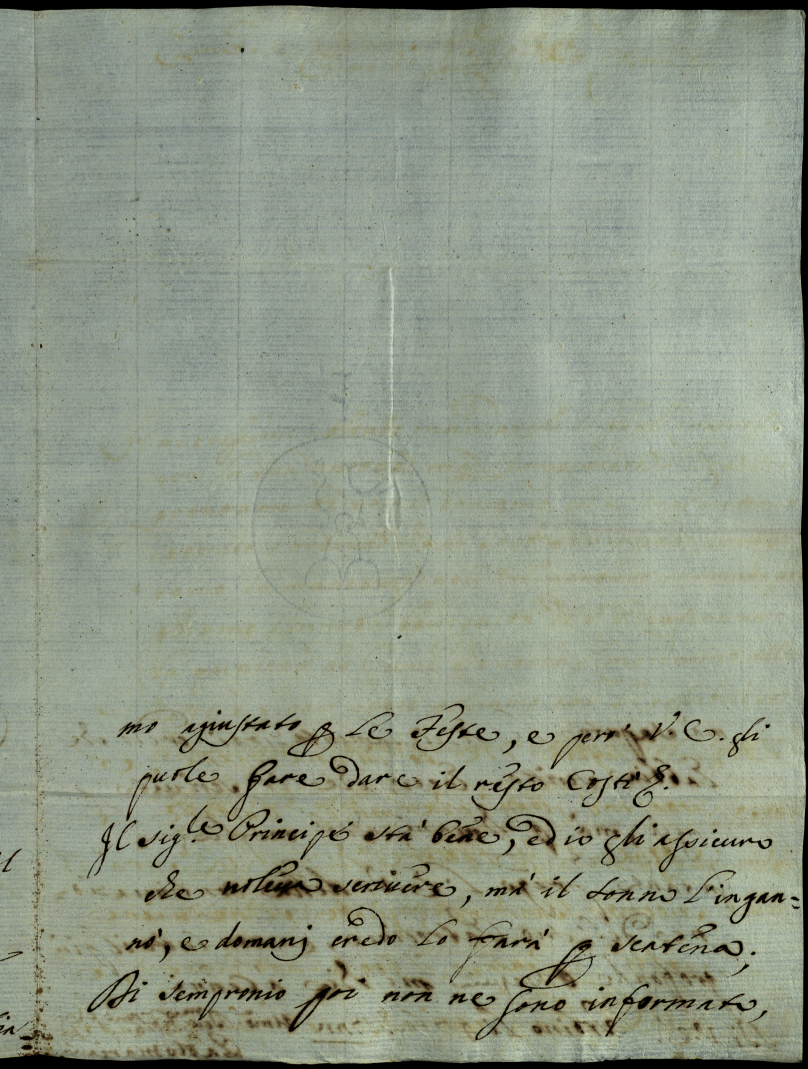 mo agiustato p le Feste, e però V. E. gli
puole fare dare il resto Costì &.
Il sig.le Principe stà bene, ed io gli assicuro
che voleva scrivere, mà il sonno l'ingan=
nò, e domanj credo lo farà p
Di sempronio poi non ne sono informato,